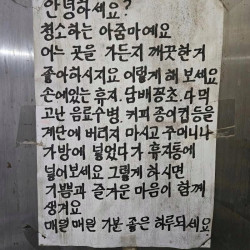 안녕하세요?
청소하는 아줌마예요
어느 곳을 가든지 깨끗한거
좋아하시지요 이렇게 해 보세요
손에있는 휴지. 담배꽁초. 다 먹
고난 음료수병. 커피 종이컵등을
계단에 버리지 마시고 주머니나
가방에 넣었다가 휴지통에
넣어보세요 그렇게 하시면
기쁨과 즐거운 마음이 함께
생겨요
매일 매일 기분 좋은 하루되세요